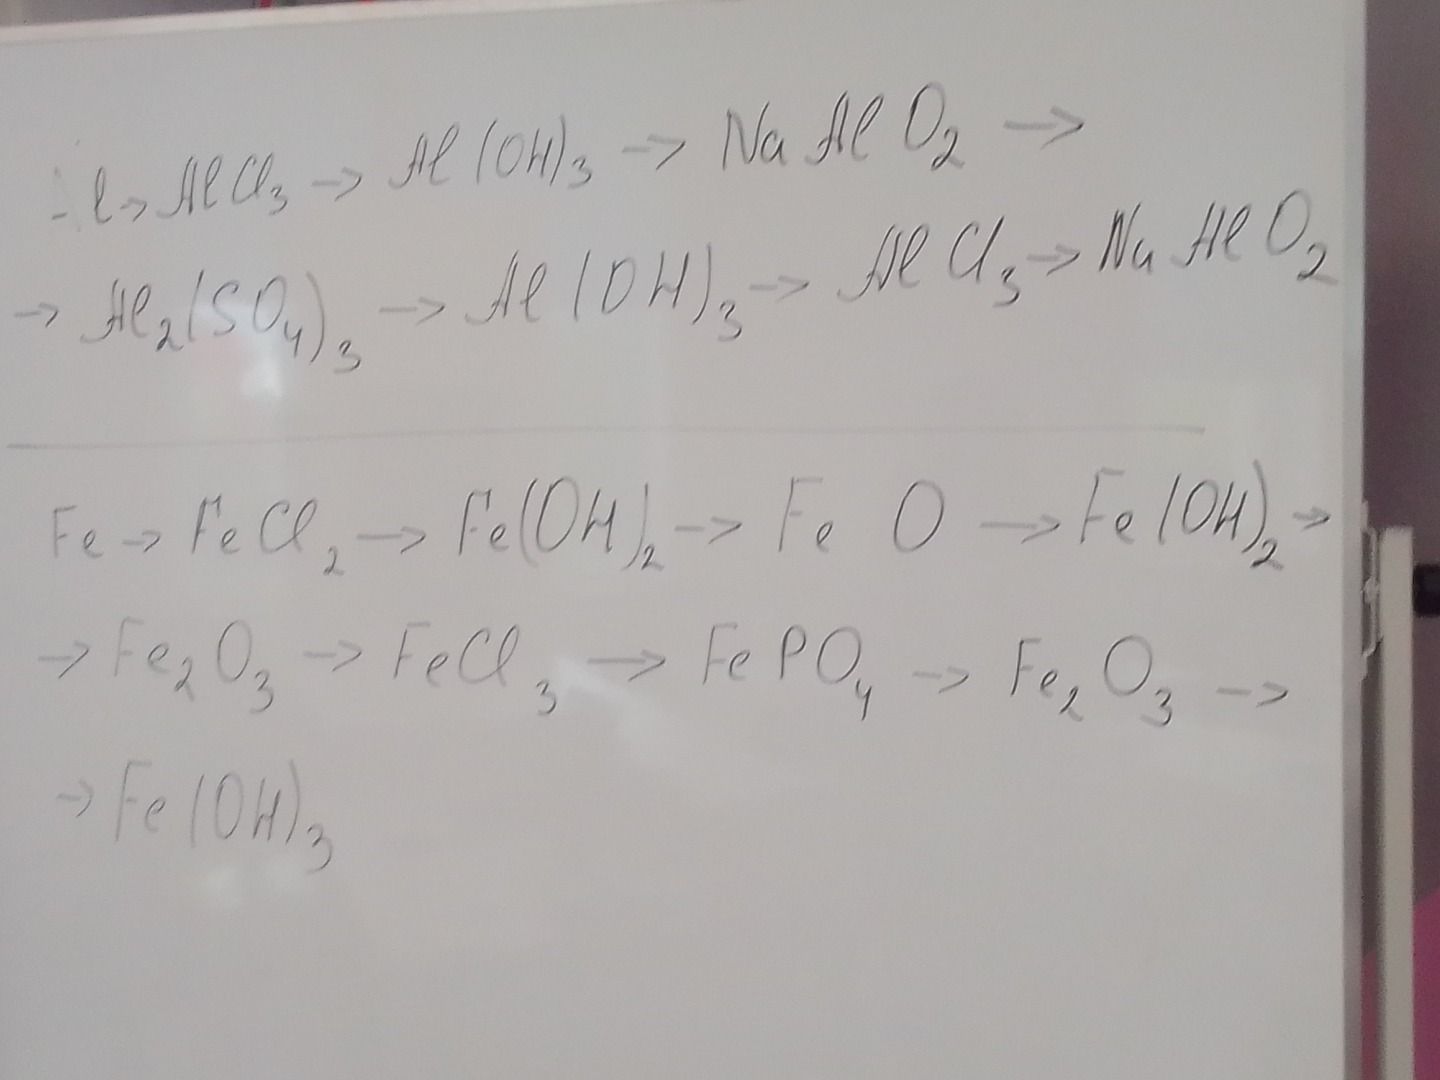 l → AlCl₃ → Al(OH)₃ → NaAlO₂ →
→ Al₂(SO₄)₃ → Al(OH)₃ → AlCl₃ → NaAlO₂
Fe → FeCl₂ → Fe(OH)₂ → FeO → Fe(OH)₂ →
→ Fe₂O₃ → FeCl₃ → FePO₄ → Fe₂O₃ →
→ Fe(OH)₃